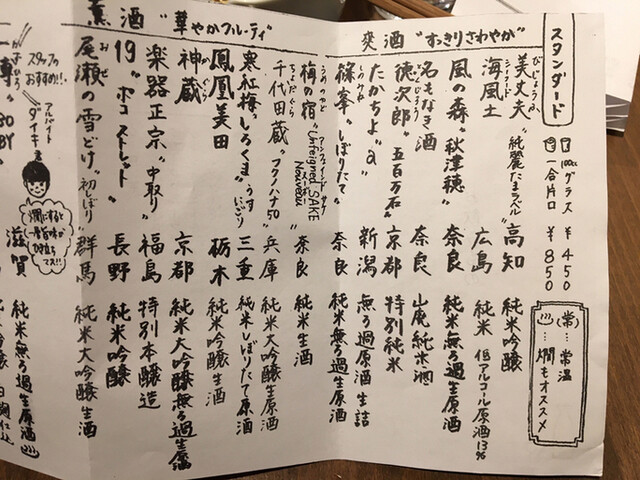 スタンダード
100ccグラス ¥450
一合片口 ¥850
(常)…常温
…燗もオススメ
爽酒 "すっきりさわやか"
美丈夫 "純麗たまラベル" 高知 純米吟醸
びじょうふ
海風土 広島 純米 低アルコール原酒13%
シーフード
風の森 "秋津穂" 奈良 純米無ろ過生原酒
名もなき酒 奈良 山廃純米酒
徳次郎 "五百万石" 京都 特別純米
とくじろう
たかちよ 新潟 無ろ過原酒生詰
篠峯 "しぼりたて" 奈良 純米無ろ過生原酒
しのみね
梅の宿 "Unfeigned SAKE Nouveau" 奈良 純米生酒
千代田蔵 "フクノハナ50" 兵庫 純米大吟醸生原酒
寒紅梅 "しろくま" うすにごり 三重 純米しぼりたて原酒
鳳凰美田 栃木 純米吟醸生酒
神蔵 京都 純米大吟醸無ろ過生原酒
かぐら
薫酒 "華やかフルーティ"
楽器正宗 "中取り" 福島 特別本醸造
19 "ポコ ストレット" 長野 純米吟醸
尾瀬の雪どけ "初しぼり" 群馬 純米大吟醸生酒
おぜ
スタッフの
おすすめ!!
アルバイト
ダイキ君
燗にすると
一番旨味が
際立ち
マス!!
滋賀
純米無ろ過生原酒